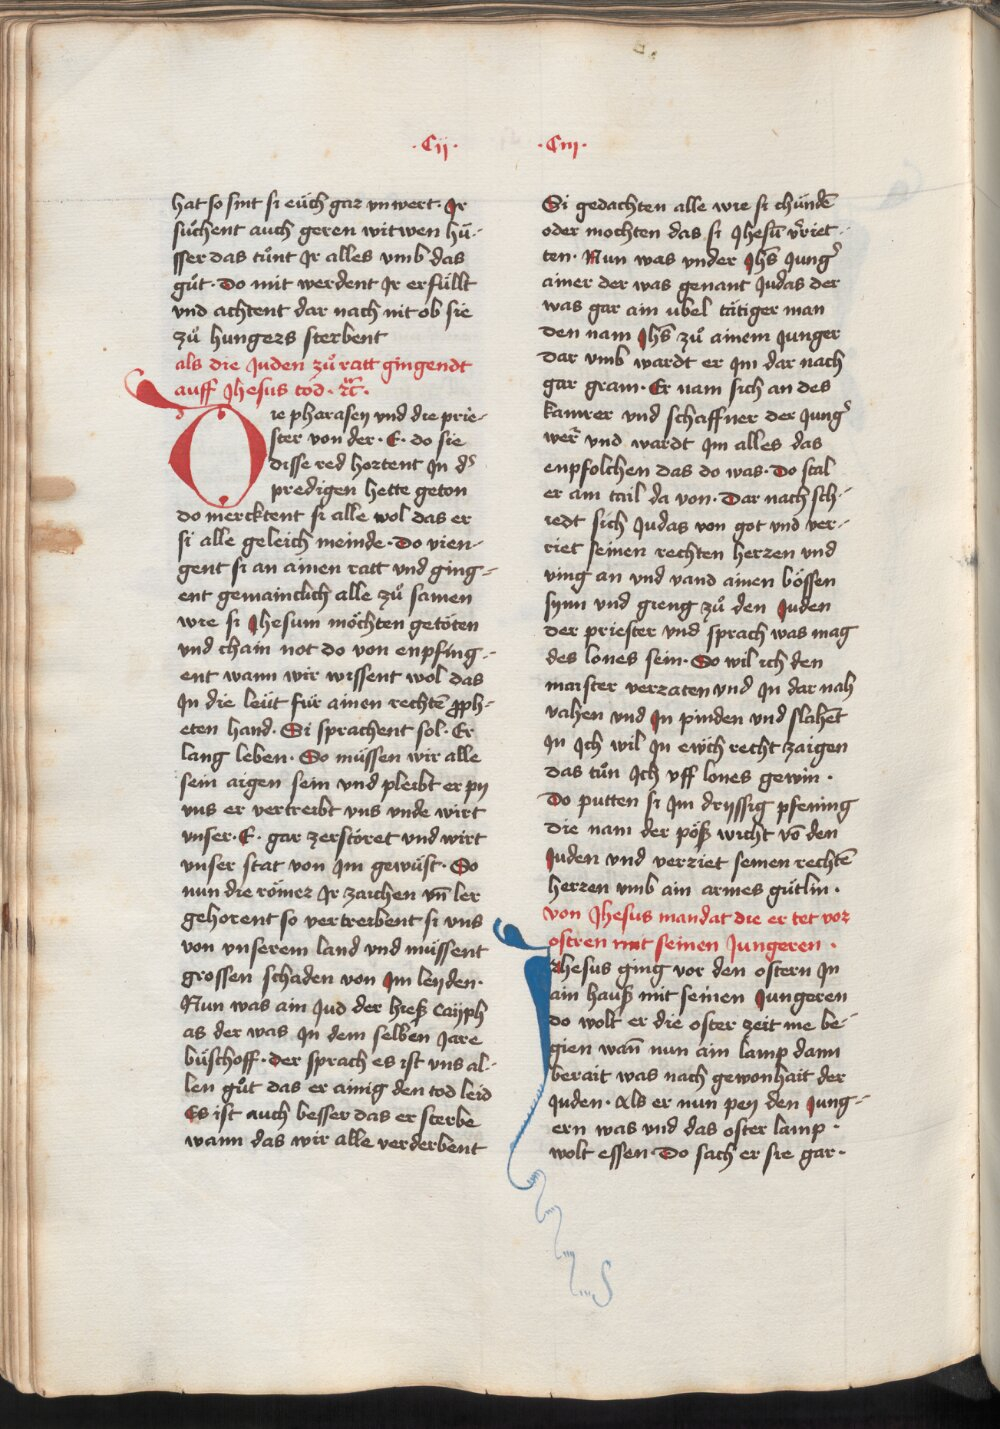 ·Cij·
hat so sint si eüch gar vnwert· Jr
sůchent auch geren witwen hü-
sser das tůnt Jr alles vmb das
gůt· Do mit werdent Jr erfüllt
vnd achtent dar nach nit ob sie
zů hungers sterbent
als die Juden zů ratt gingendt
auff Jhesus tod· rc̃·
Die pharasen vnd die prie-
ster von der· E· do sie
disse red hortent Jn ds
predigen hette geton
do mercktent si alle wol das er
si alle geleich meinde· Do vien-
gent si an ainen ratt vnd ging-
ent gemainclich alle zů samen
wie si Jhesum möchten getöten
vnd chain not do von enpfing-
ent wann wir wissent wol das
Jn die leüt für ainen rechtē pph-
eten hand· Si sprachent sol· Er
lang leben· So müssen wir alle
sein aigen sein vnd pleibt er py
vns er vertreibt vns vnde wirt
vnser· E· gar zerstöret vnd wirt
vnser stat von Jm gewüst· So
nun die römer Jr zaichen vñ ler
gehorent so vertreibent si vns
von vnserem land vnd müssent
grossen schaden von Jm leyden·
Nun was ain Jud der hieß Cayph
as der was Jn dem selben Jare
büschoff· der sprach es ist vns al-
len gůt das er ainig den tod leid
Es ist auch besser das er sterbe
wann das wir alle verderbent
·Ciij·
Si gedachten alle wie si chündē
oder mochten das si Jhesū v̄riet-
ten· Nun was vnder Jhs̄ Jung̛
ainer der was genant Judas der
was gar ain ubel tätiger man
den nam Jhs̄ zů ainem Junger
dar vmb wardt er Jm dar nach
gar gram· Er nam sich an des
kamrer vnd schaffner der Jung̛
wer̄ vnd wardt Jm alles das
enpfolchen das do was· Do stal
er ain tail da von· Dar nach sch-
iedt sich Judas von got vnd ver-
riet seinen rechten herzen vnd
ving an vnd vand ainen bössen
synn vnd gieng zů den Juden
der priester vnd sprach was mag
des lones sein· So wil ich den
maister verraten vnd Jn dar nah
vahen vnd Jn pinden vnd slahēt
Jn Jch wil Jn ewch recht zaigen
das tůn Jch vff lones gewin·
Do putten si Jm dryssig pfening
die nam der pöß wicht vō den
Juden vnd verriet seinen rechtē
herren vmb ain armes gütlin·
von Jhesus mandat die er tet vor
ostren mit seinen Jungeren·
Jhesus ging vor den ostern Jn
ain hauß mit seinen Jungeren
do wolt er die oster zeit me be-
gien wañ nun ain lamp dann
berait was nach gewonhait der
Juden· Als er nun pey den Jung-
ern was vnd das oster lamp·
wolt essen· Do sach er sie gar·